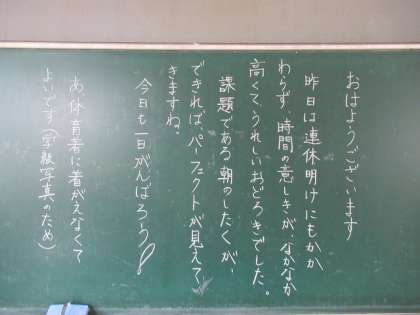 おはようございます
昨日は連休明けにもかか
わらず、時間の意しきが、なかなか
高くて、うれしいおどろきでした。
課題である朝のしたくが、
できれば、パーフェクトが見えて
きますね。
今日も一日がんばろう!
あ、体育着に着がえなくて
よいです(学級写真のため)